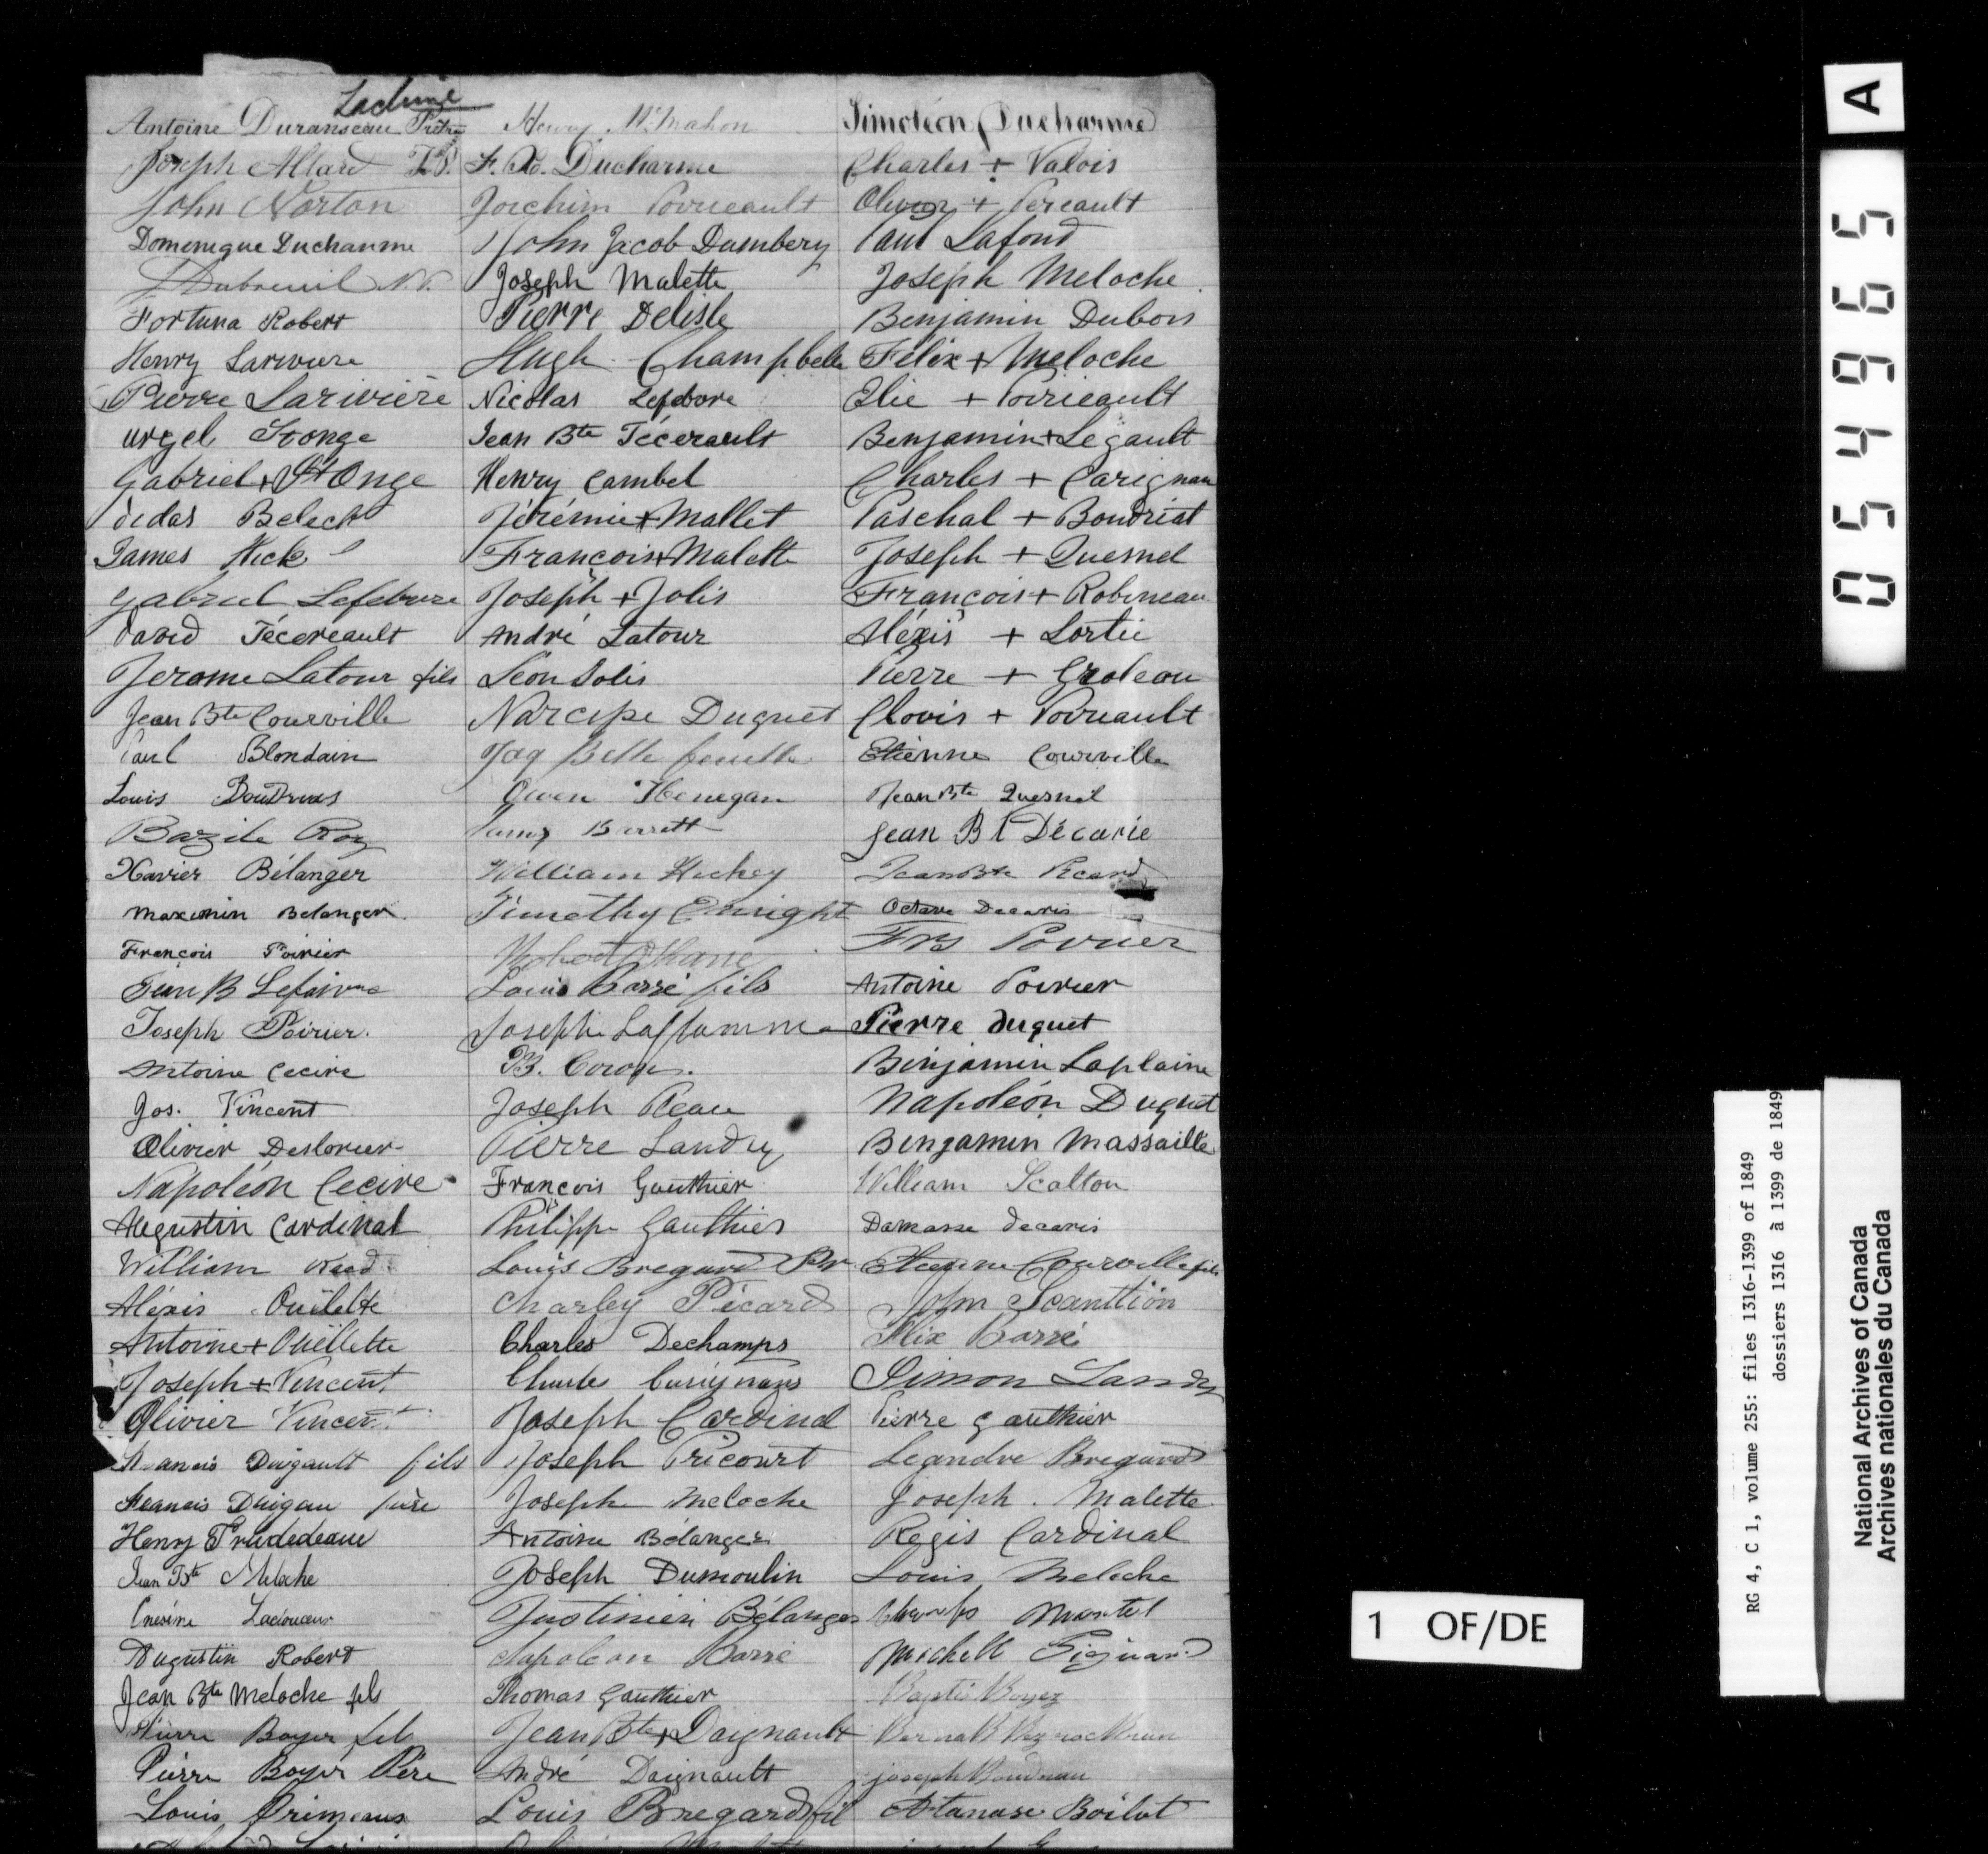 Lachine
Antoine Duranseau Ptre
Joseph Allard
John Norton
Domenique Duchaume
Dubreuil N.P.
Fortuna Robert
Henry Lariviere
Pierre Larivière
urgel Stonge
Gabriel + St Onge
dedas Beleck
James Hick
Gabriel Lefebvre
David Técereault
Jerome Latour fils
Jean Bte Courville
Paul Blondain
Louis
Bazile Roy
Xavier Bélanger
Maximin Belanger
François Poirier
Jean B Lefaivre
Joseph Poirier
Antoine Cecire
Jos. Vincent
Olivier Deslorier
Napoléon Cecire
Augustin Cardinal
William
Aléxis Ouëlette
Antoine + Ouëllette
Joseph + Vincent
Olivier Vincent
Daigault fils
Daigau père
Henry Trudedeaux
Jean Bte Meloche
Ladouceur
Augustin Robert
Jean Bte Meloche fils
Pierre Boyer fils
Pierre Boyer Père
Louis Primeaux
Henry McMahon
F. X. Ducharme
Joichim Poirieault
John Jacob Dumbery
Joseph Malette
Pierre Delisle
Hugh Champbell
Nicolas Lefebvre
Jean Bte Técerault
Henry Cambel
Jérémie + Mallet
François + Malette
Joseph + Jolis
André Latour
Léon Solis
Narcisse Duquet
Jag Belle feuille
Owen Henegan
Barrett
William Hickey
Timothy Enright
Robert
Louis Barré fils
Joseph Laflamme
B.
Joseph Reau
Pierre Landry
François Gauthier
Philippe Gauthier
Louis Bregard
Charley Picard
Charles Dechamps
Charles
Joseph Cardinal
Joseph Pricourt
Joseph Meloche
Antoine Bélanger
Joseph Dumoulin
Justinien Bélanger
Napoleon Barré
Thomas Gauthier
Jean Bte + Daignault
André Daignault
Louis Bregard fil
Simoléon Ducharme
Charles + Valois
Olivier + Pereault
Paul Lafond
Joseph Meloche
Benjamin Dubois
Félix + Meloche
Elie + Poirieault
Benjamin + Legault
Charles + Carignan
Paschal + Boudriat
Joseph + Quesnel
François + Robineau
Aléxis + Lortie
Pierre + Groleau
Clovis + Poirieault
Etienne Courville
Jean Bte Quesnel
Jean Bt Décarie
Jean Bte Picard
Octave Decaris
Frs Poirier
Antoine Poirier
Pierre duquet
Benjamin Laplaine
Napoléon Duquet
Benjamin Massaille
William Scalton
Damasse decaris
Etienne Courville fils
John Scanttion
Félix Barré
Simon Landry
Pierre Gauthier
Leandre Bregard
Joseph Malette
Regis Cardinal
Louis Meloche
Martel
Michell
Baptis Boyez
joseph Boudriau
Atanase Boilat
A
054965
1 OF/DE
RG 4, C 1, volume 255: files 1316-1399 of 1849
dossiers 1316 à 1399 de 1849
National Archives of Canada
Archives nationales du Canada